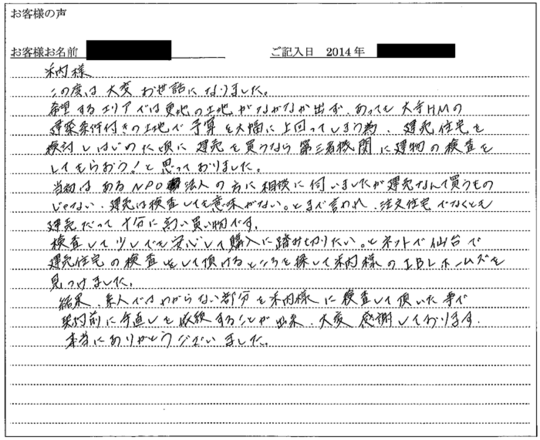 お客様の声
お客様お名前 ご記入日 2014年
禾内様
この度は大変お世話になりました。
希望するエリアでは更地の土地がなかなか出ず、あっても大手HMの
建築条件付きの土地で予算を大幅に上回ってしまう為、建売住宅を
検討しはじめた頃に建売を買うなら第三者機関に建物の検査を
してもらおう!と思っておりました。
当初はあるNPO法人の方に相談に伺いましたが建売なんて買うもの
じゃない、建売は検査しても意味がない。とまで言われ、注文住宅でなくとも
建売だって十石に高い買い物です。
検査して少しでも安心して購入に踏み切りたい。とネットで仙台で
建売住宅の検査をして頂けるところを探して禾内様のIBLホームズを
見つけました。
結果、素人ではわからない部分を禾内様に検査して頂いた事で
契約前に手直しを依頼することが出来、大変感謝しております。
本当にありがとうございました。